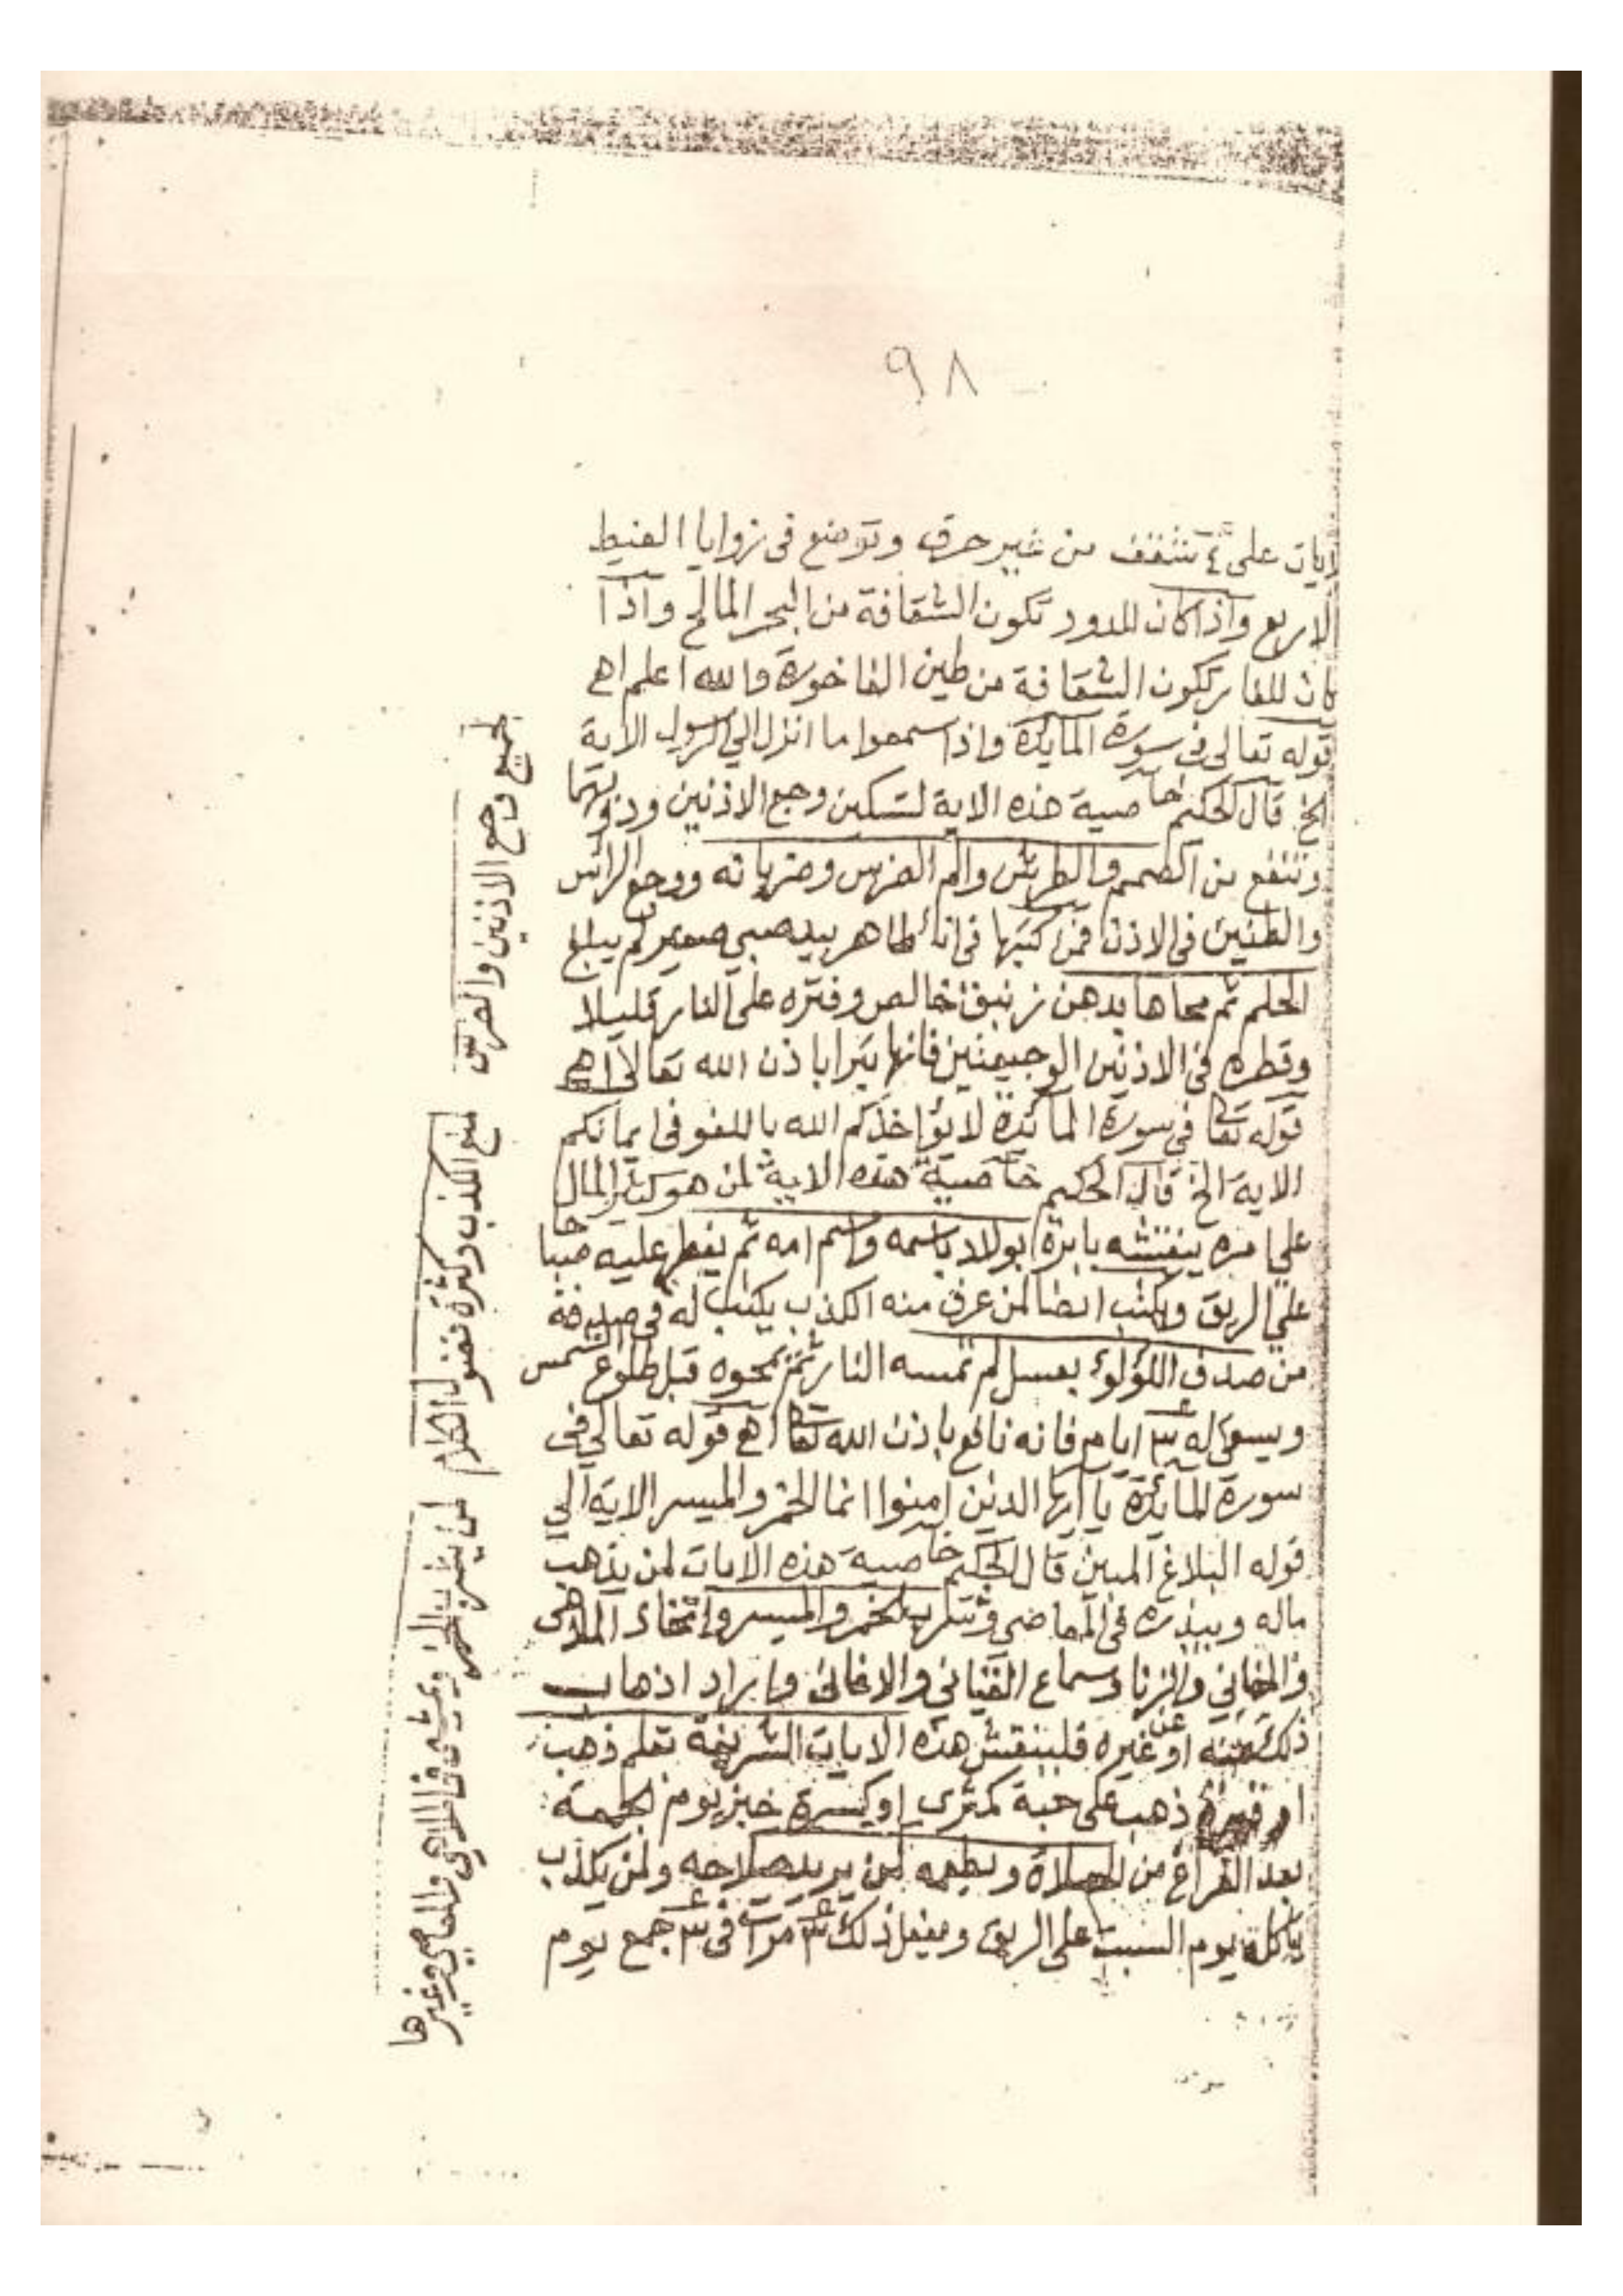 ٩٨
الايات على ٤ شقف من غير حرق وتوضع فى زوايا الغيط
الاربع واذا كان للدود تكون الشقافة من البحر المالح واذا
كان للفار تكون الشقافة من طين الفاخورة والله اعلم اهـ
قوله تعالى فى سورة المائدة واذا سمعوا ما انزل الي الرسول الاية
الخ قال الحكيم خاصية هذه الاية لتسكين وجع الاذنين ودويهما
وتنفع من الصمم والطرش والم الضرس وضرباته ووجع الراس
والطنين فى الاذن فمن كتبها فى اناء طاهر بيد صبي صغير لم يبلغ
الحلم ثم محاها بدهن زنبق خالص وفتره على النار قليلا
وقطره فى الاذنين الوجيعتين فانها تبرا باذن الله تعالى اهـ
قوله تعا فى سورة المائدة لا يؤاخذكم الله باللغو فى ايمانكم
الاية الخ قال الحكيم خاصية هذه الاية لمن هو كثير
على ينقشه بابرة بولاد باسمه واسم امه ثم يفطر عليه صباحا
على الريق ويكتب ايضا لمن عرف منه الكذب يكتب له فى صدفة
من صدف اللؤلؤ بعسل لم تمسه النار ثم تمحوه قبل طلوع الشمس
ويسقى له ٣ ايام فانه نافع باذن الله تعا اهـ قوله تعالى فى
سورة المائدة يا ايها الذين امنوا انما الخمر والميسر الاية الي
قوله البلاغ المبين قال الحكيم خاصية هذه الايات لمن يذهب
ماله ويبذره فى المعاصي وشرب الخمر والميسر واتخاذ الملاهى
والمغاني والزنا وسماع القيناني والاغانى واراد اذهاب
ذلك عنه او عن غيره فلينقش هذه الايات الشريفة بقلم ذهب
او ذهب على حبة كمثرى او كسرة خبز يوم الجمعة
بعد الفراغ من الصلاة ويطعمه لمن يريد صلاحه ولمن يكذب
ياكله يوم السبت على الريق ويفعل ذلك ٣ مرات فى ٣ جمع يوم
لجميع وجع الاذنين والضرس
لمنع الكذب وكثرة فضول الكلام
لمن يشرب الخمر فى الملاهى والمعاصي وغيرها